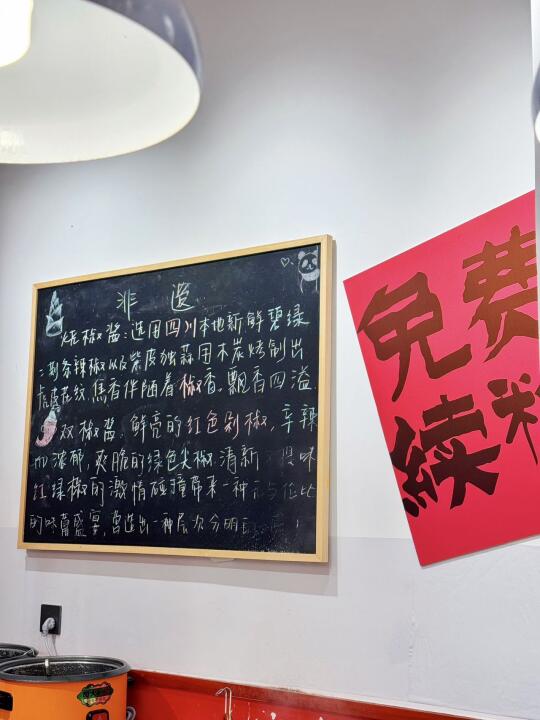 非遗
烧椒酱:选用四川本地新鲜碧绿
二荆条辣椒以及紫皮独蒜用木炭烤制出
虎皮花纹,焦香伴随着椒香,飘香四溢.
双椒酱,鲜亮的红色剁椒,辛辣
浓郁,爽脆的绿色尖椒清新
红绿椒的激情碰撞带来一种
的味蕾盛宴,营造出一种层次分明
免费
续粉